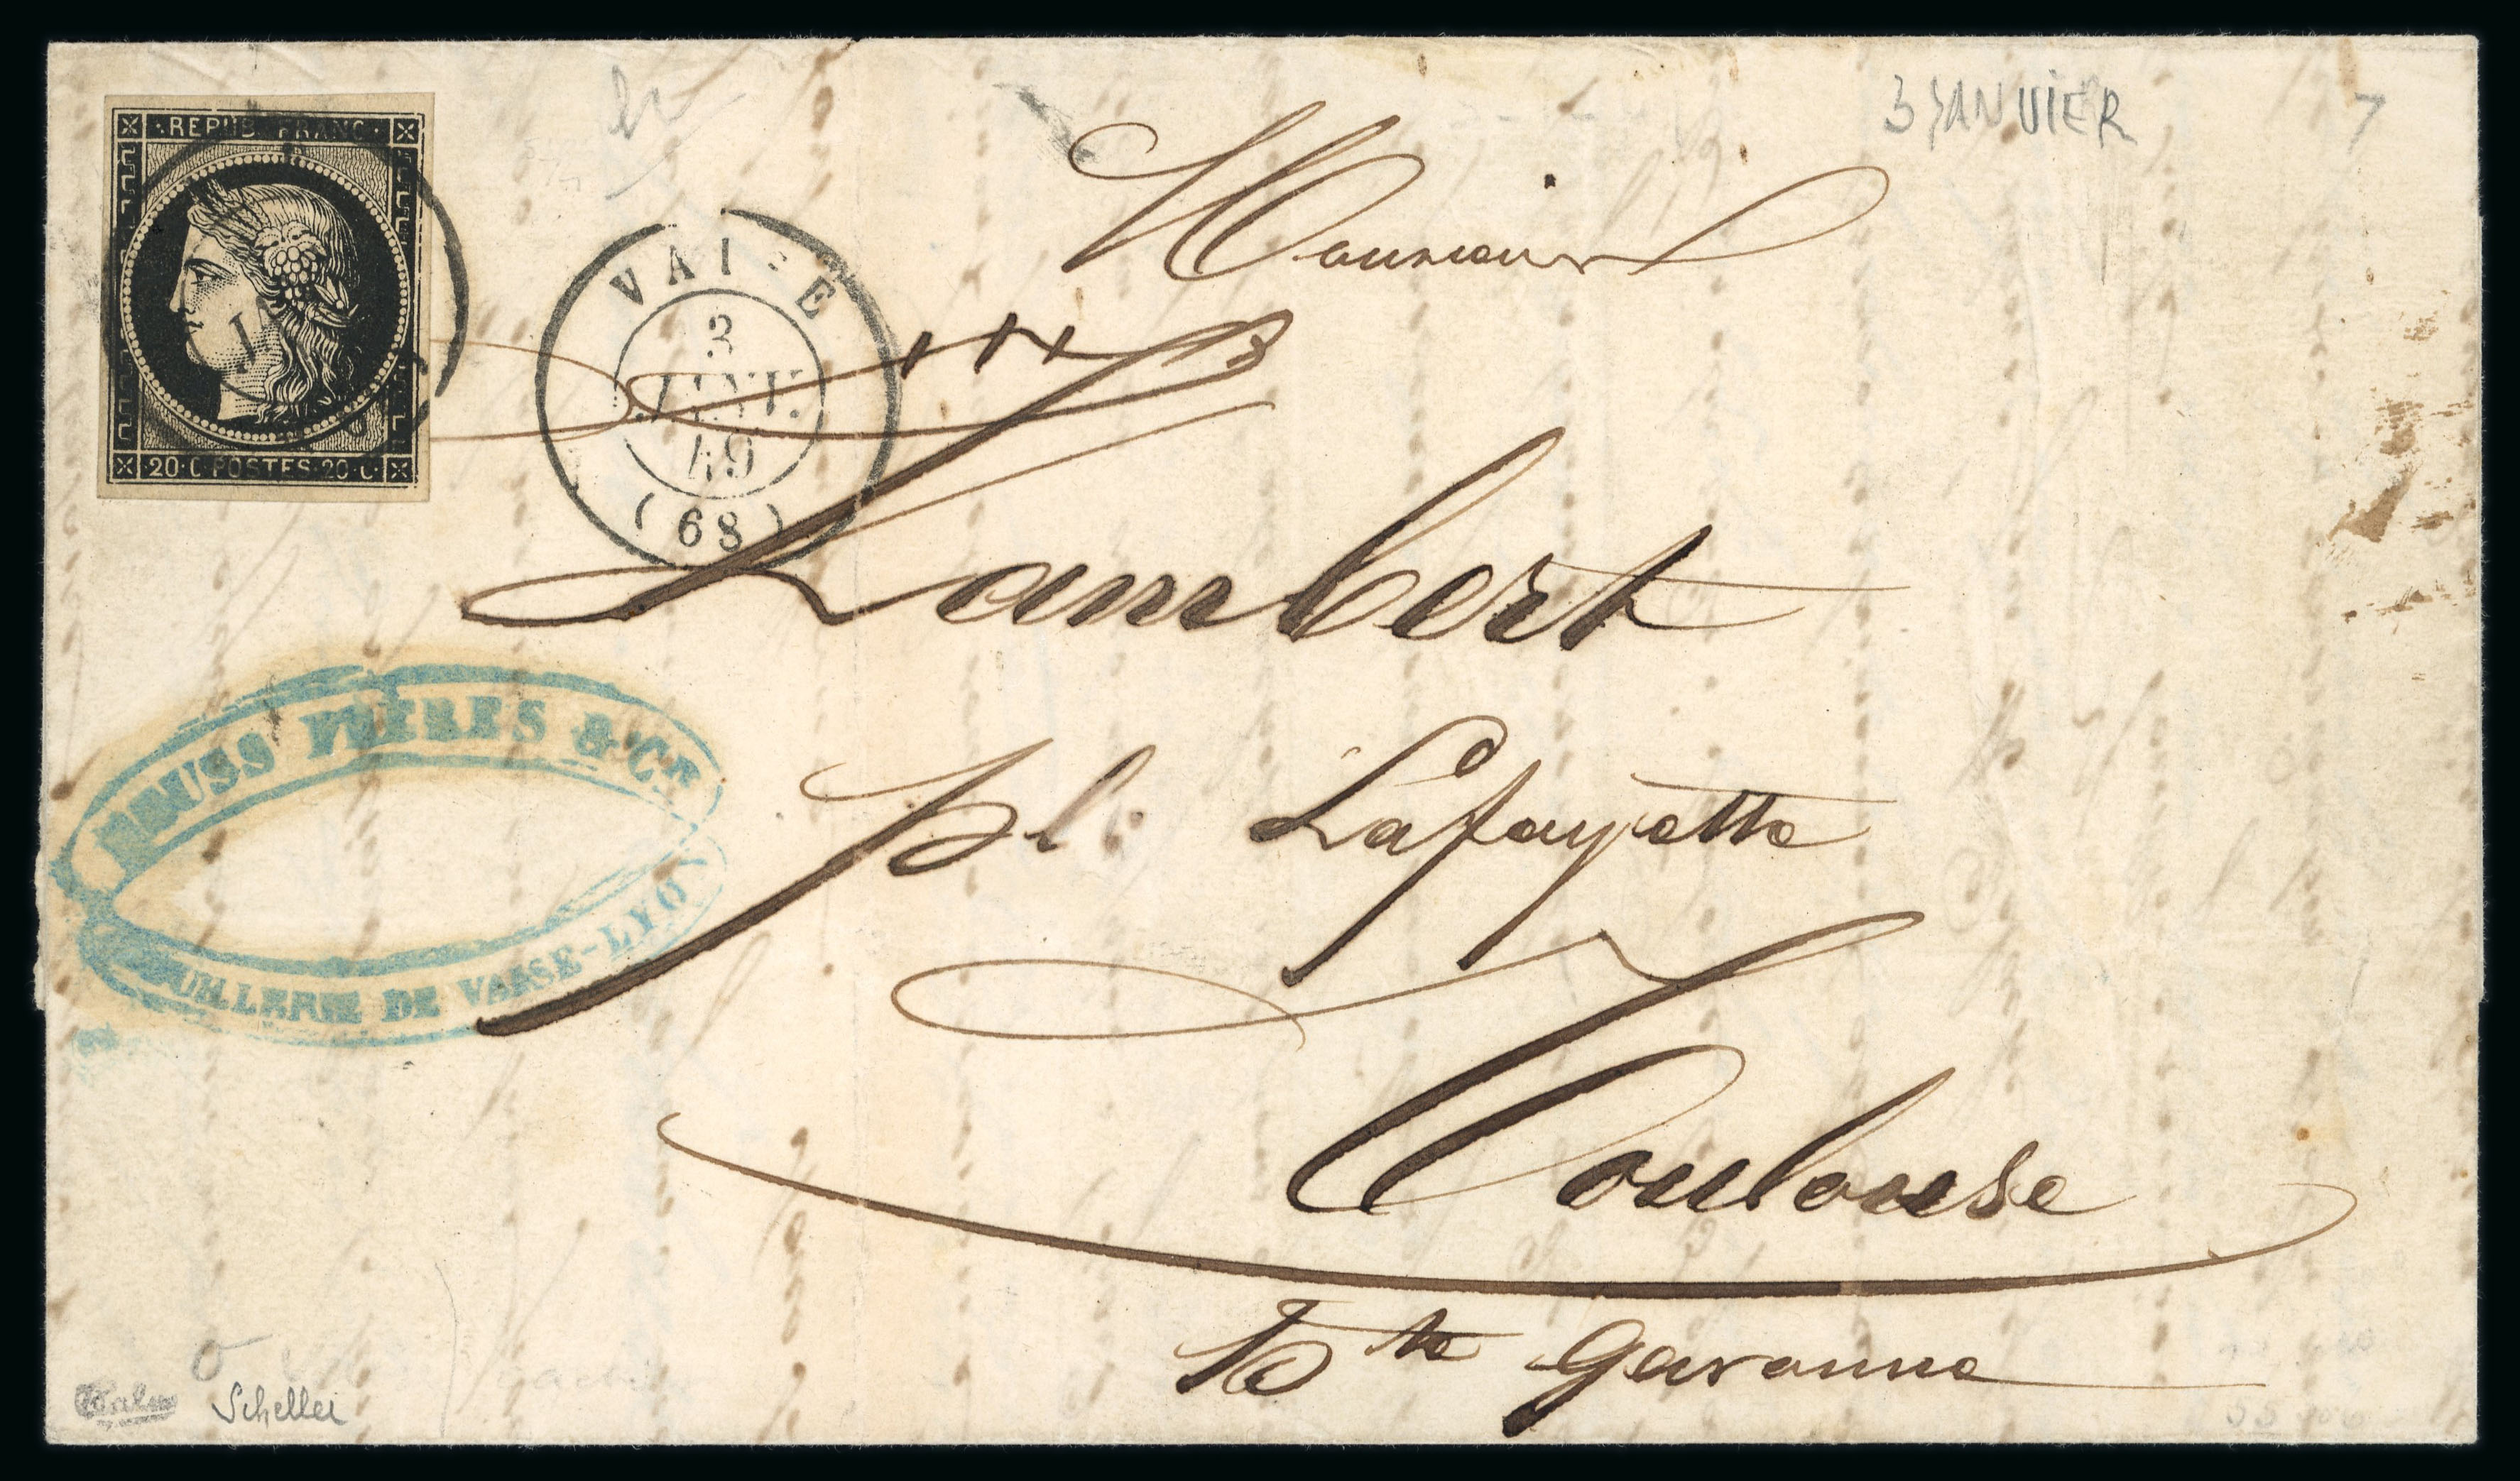 3 JANVIER
7
REPUB. FRANC.
20·C·POSTES·20·C
VAISE
3
JANV.
49
(68)
Monsieur
Lambert
pl. Lafayette
Toulouse
hte Garonne
REUSS FRERES & CIE
DE VAISE-LYON
Calves
Scheller